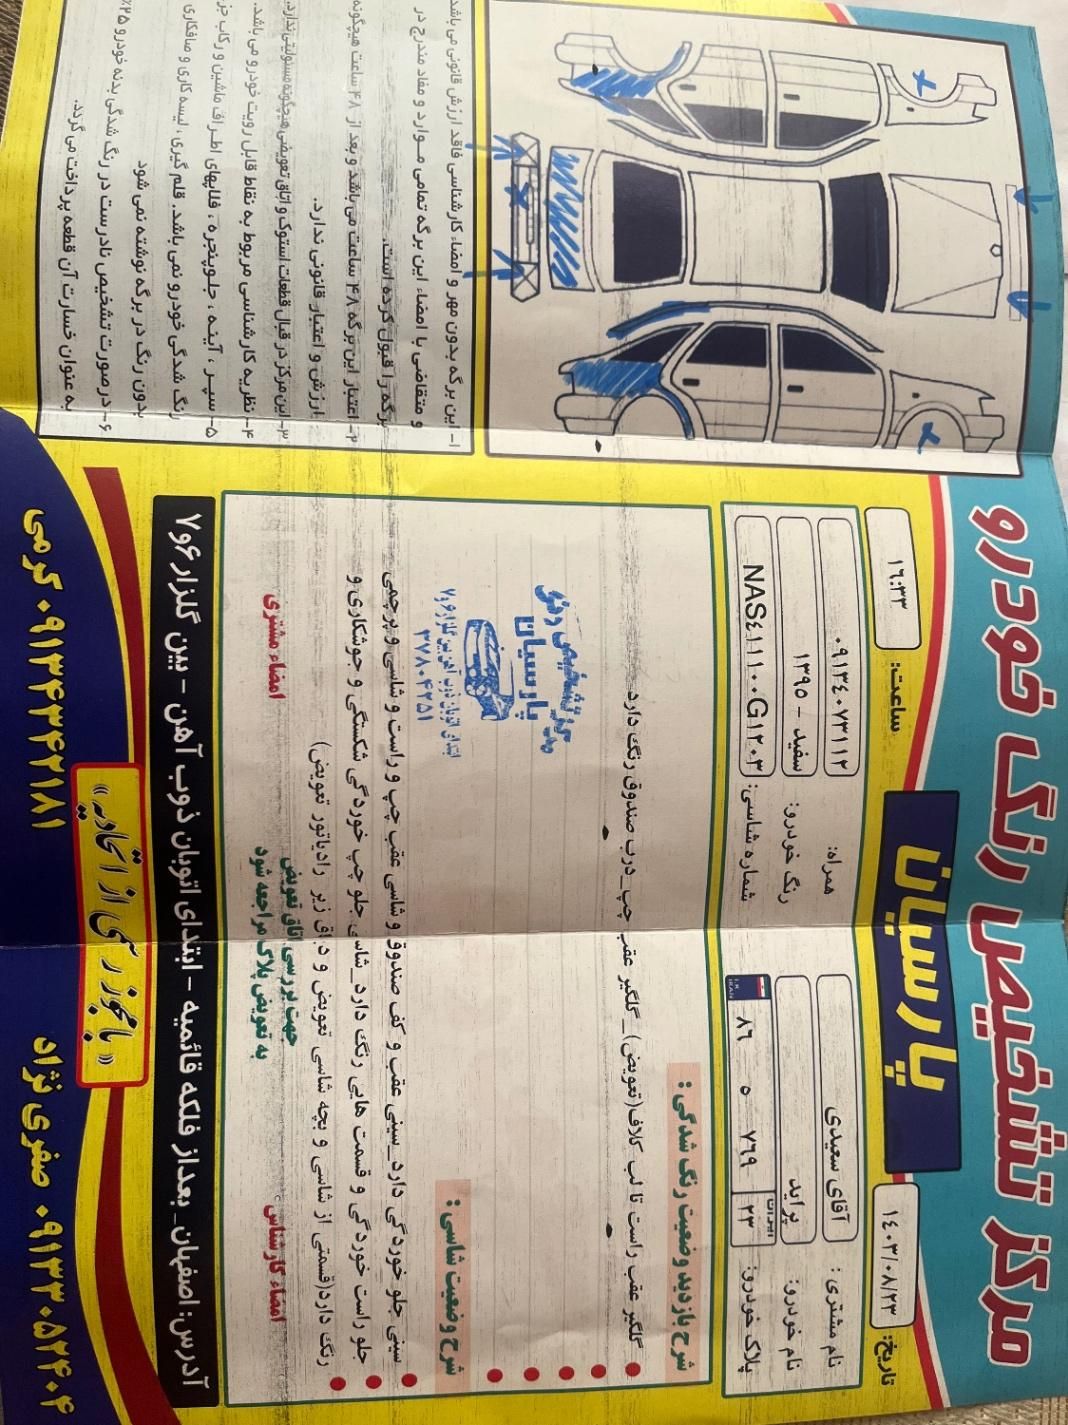 مرکز تشخیص رنگ خودرو
پارسیان
تاریخ: ۱۴۰۳/۰۸/۲۳
ساعت: ۱۶:۳۳
نام مشتری: آقای سعیدی
همراه: ۰۹۱۳۴۰۷۳۱۱۲
نام خودرو: پراید
رنگ خودرو: سفید - ۱۳۹۵
پلاک خودرو: ۸۶ ۵ ۷۶۹ ایران ۲۳
I.R. IRAN
شماره شاسی: NAS٤١١١٠٠G١٢٠٣
شرح بازدید وضعیت رنگ شدگی:
گلگیر عقب راست تا لب کلاف(تعویض)_گلگیر عقب چپ_درب صندوق رنگ دارد
شرح وضعیت شاسی:
سینی جلو خوردگی دارد_سینی عقب و کف صندوق و شاسی عقب چپ و راست و شاسی و پرچمی
جلو راست خوردگی و قسمت هایی رنگ دارد_شاسی جلو چپ خوردگی شکستگی و جوشکاری و
رنگ دارد(قسمتی از شاسی و بچه شاسی تعویض و دیاق زیر رادیاتور تعویض)
مرکز تشخیص رنگ
پارسیان
ابتدای اتوبان ذوب آهن بین گلزار ۶و۷
۳۷۸۰۴۲۵۱
امضاء کارشناس
جهت بررسی اتاق تعویض
به تعویض پلاک مراجعه شود
امضاء مشتری
آدرس: اصفهان_ بعداز فلکه قائمیه - ابتدای اتوبان ذوب آهن - بین گلزار ۶و۷
«با مجوز رسمی از اتحادیه»
صفری نژاد ۰۹۱۳۳۰۵۲۴۰۴
کرمی ۰۹۱۳۴۳۴۴۲۱۸۱
۱- این برگه بدون مهر و امضاء کارشناسی فاقد ارزش قانونی می باشد
و متقاضی با امضاء این برگه تمامی موارد و مفاد مندرج در
برگه را قبول کرده است.
۲- اعتبار این برگه ۴۸ ساعت می باشد و بعد از ۴۸ ساعت هیچگونه
ارزش و اعتبار قانونی ندارد.
۳- این مرکز در قبال قطعات استوک و اتاق تعویضی هیچگونه مسئولیتی ندارد.
۴- نظریه کارشناسی مربوط به نقاط قابل رویت خودرو می باشد.
۵- سپر، آینه، جلوپنجره، فلاپهای اطراف ماشین و رکاب جزء
رنگ شدگی خودرو نمی باشد. قلم گیری، لیسه کاری و صافکاری
بدون رنگ در برگه نوشته نمی شود
۶- در صورت تشخیص نادرست در رنگ شدگی بدنه خودرو ۲۵٪
به عنوان خسارت آن قطعه پرداخت می گردد.